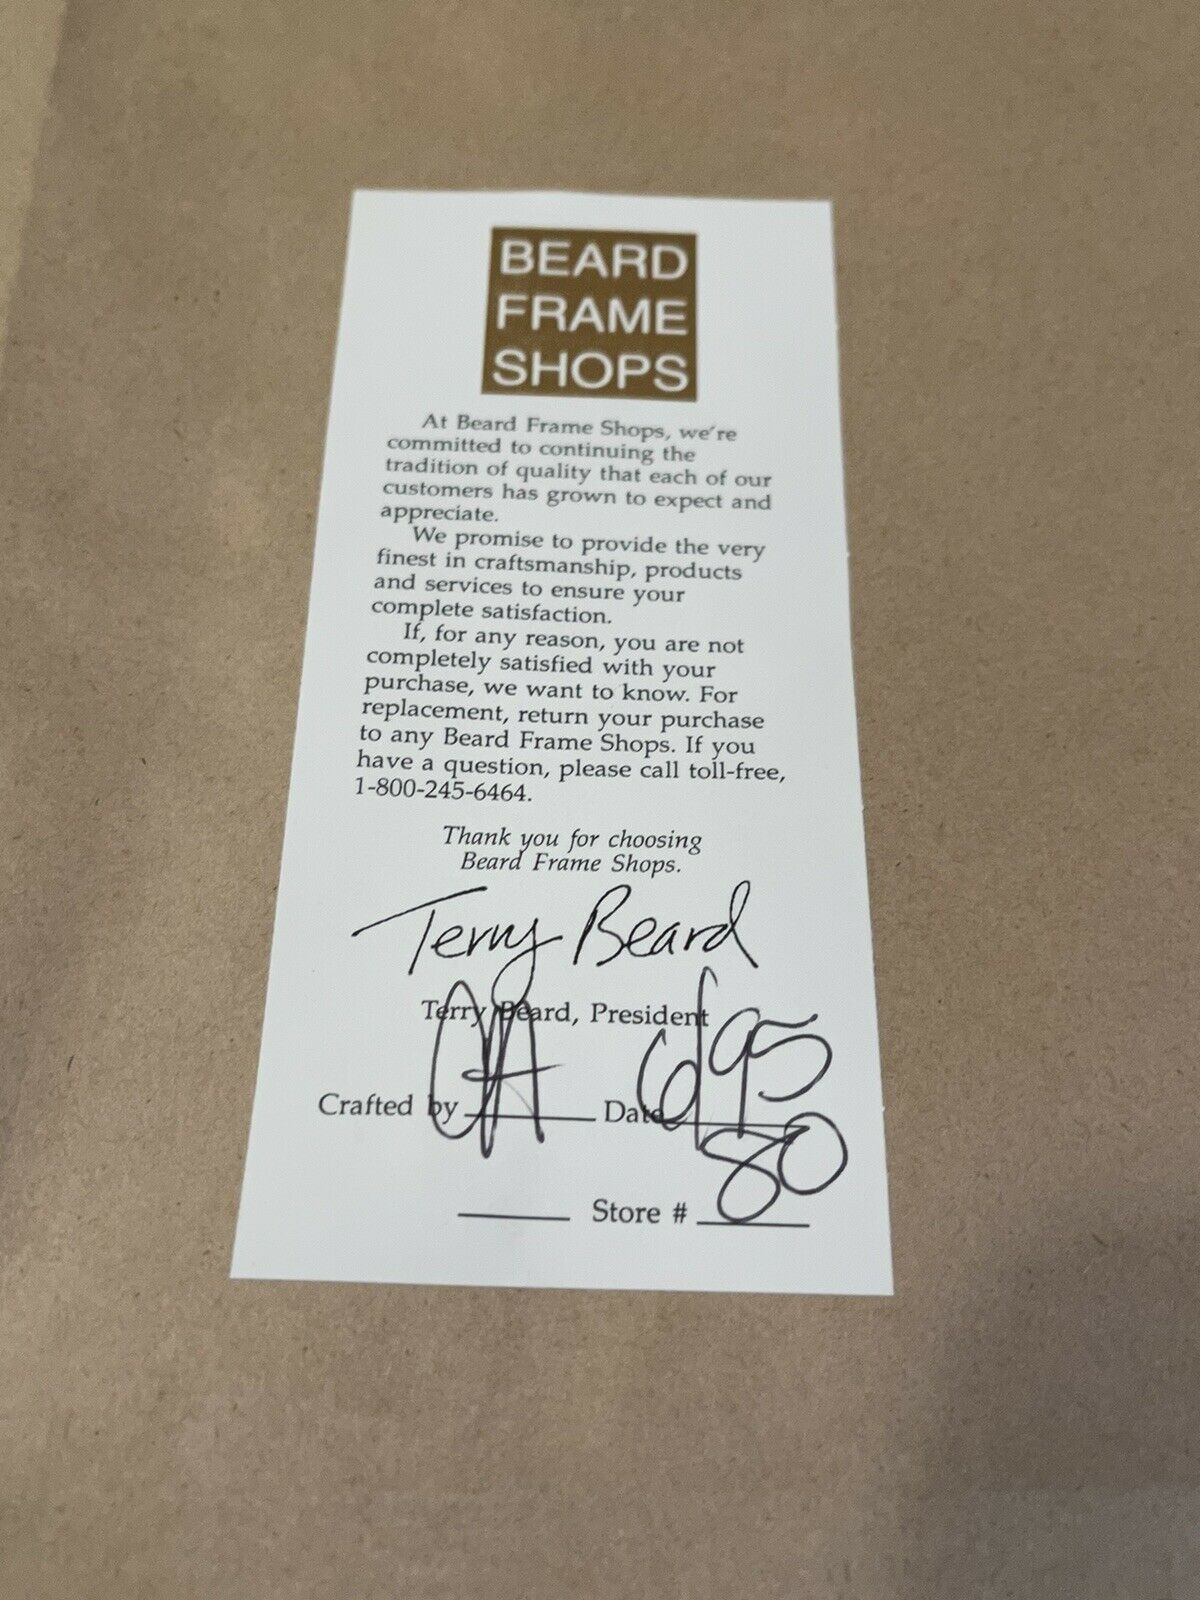 BEARD
FRAME
SHOPS
At Beard Frame Shops, we're
committed to continuing the
tradition of quality that each of our
customers has grown to expect and
appreciate.
We promise to provide the very
finest in craftsmanship, products
and services to ensure your
complete satisfaction.
If, for any reason, you are not
completely satisfied with your
purchase, we want to know. For
replacement, return your purchase
to any Beard Frame Shops. If you
have a question, please call toll-free,
1-800-245-6464.
Thank you for choosing
Beard Frame Shops.
Terry Beard
Terry Beard, President
Crafted by Date 6/95
Store # 80